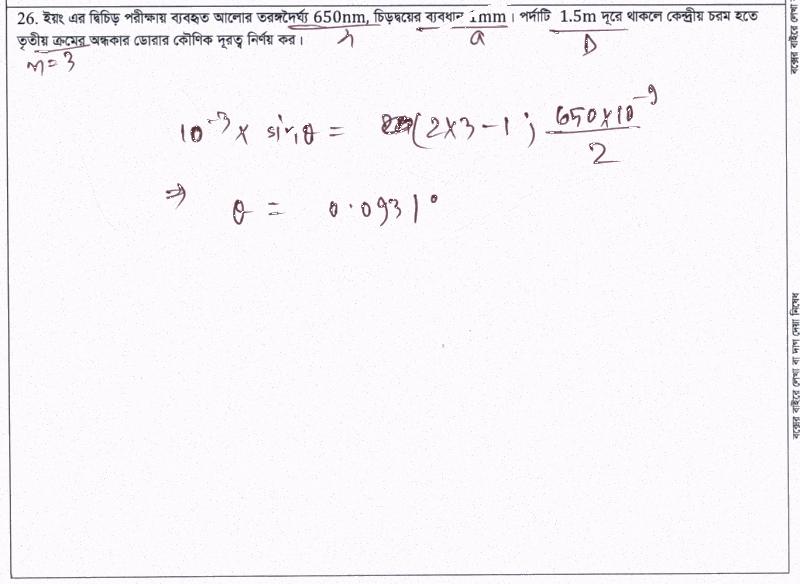 26. ইয়ং এর দ্বিচিড় পরীক্ষায় ব্যবহৃত আলোর তরঙ্গদৈর্ঘ্য 650nm, চিড়দ্বয়ের ব্যবধান 1mm। পর্দাটি 1.5m দূরে থাকলে কেন্দ্রীয় চরম হতে
λ a D
তৃতীয় ক্রমের অন্ধকার ডোরার কৌণিক দূরত্ব নির্ণয় কর।
n = 3
10⁻³ × sinθ = (2×3-1) 650×10⁻⁹ / 2
⇒ θ = 0.0931°
বক্সের বাইরে লেখা বা দাগ দেয়া নিষেধ